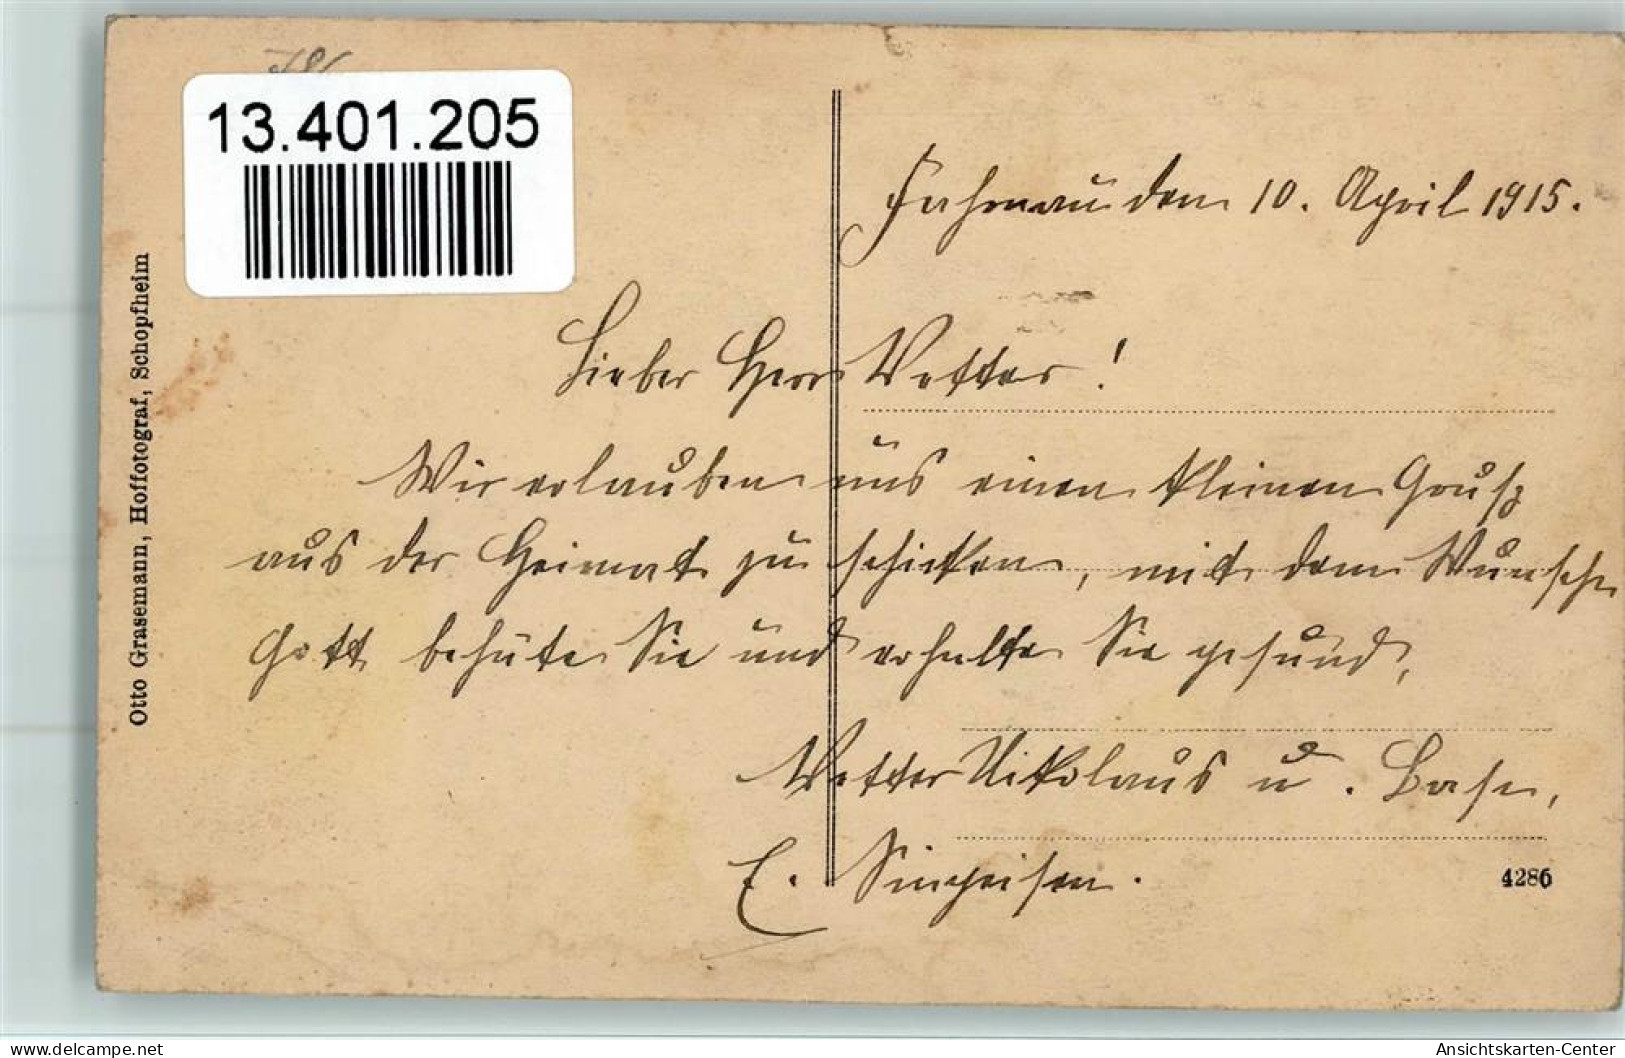 13.401.205
Otto Grasemann, Hoffotograf, Schopfheim
Fahrnau den 10. April 1915.
Lieber Herr Vetter!
Wir erlauben uns einen kleinen Gruß
aus der Heimat zu schicken, mit dem Wunsche
Gott behüte Sie und erhalte Sie gesund,
Vetter Nikolaus u. Base,
E.
4286
delcampe.net
Ansichtskarten-Center